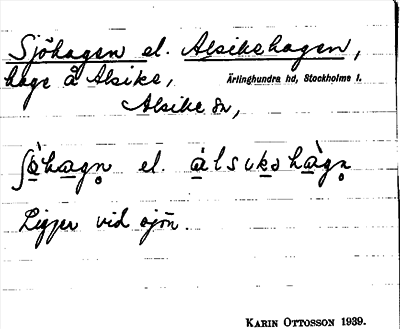 Sjöhagen el. Alsikehagen,
hage å Alsike, Ärlinghundra hd, Stockholms l.
Alsike sn,
el.
Ligger vid sjön.
KARIN OTTOSSON 1939.